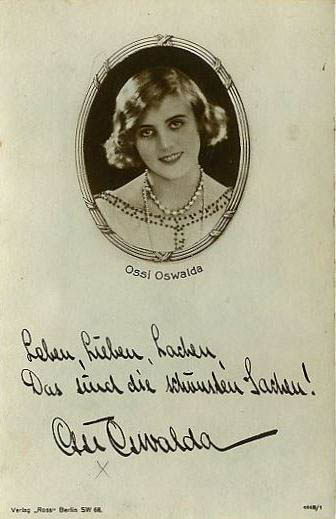 Ossi Oswalda
Leben, Lieben, Lachen,
Das sind die schönsten Sachen!
Ossi Oswalda
Verlag „Ross“ Berlin SW 68.